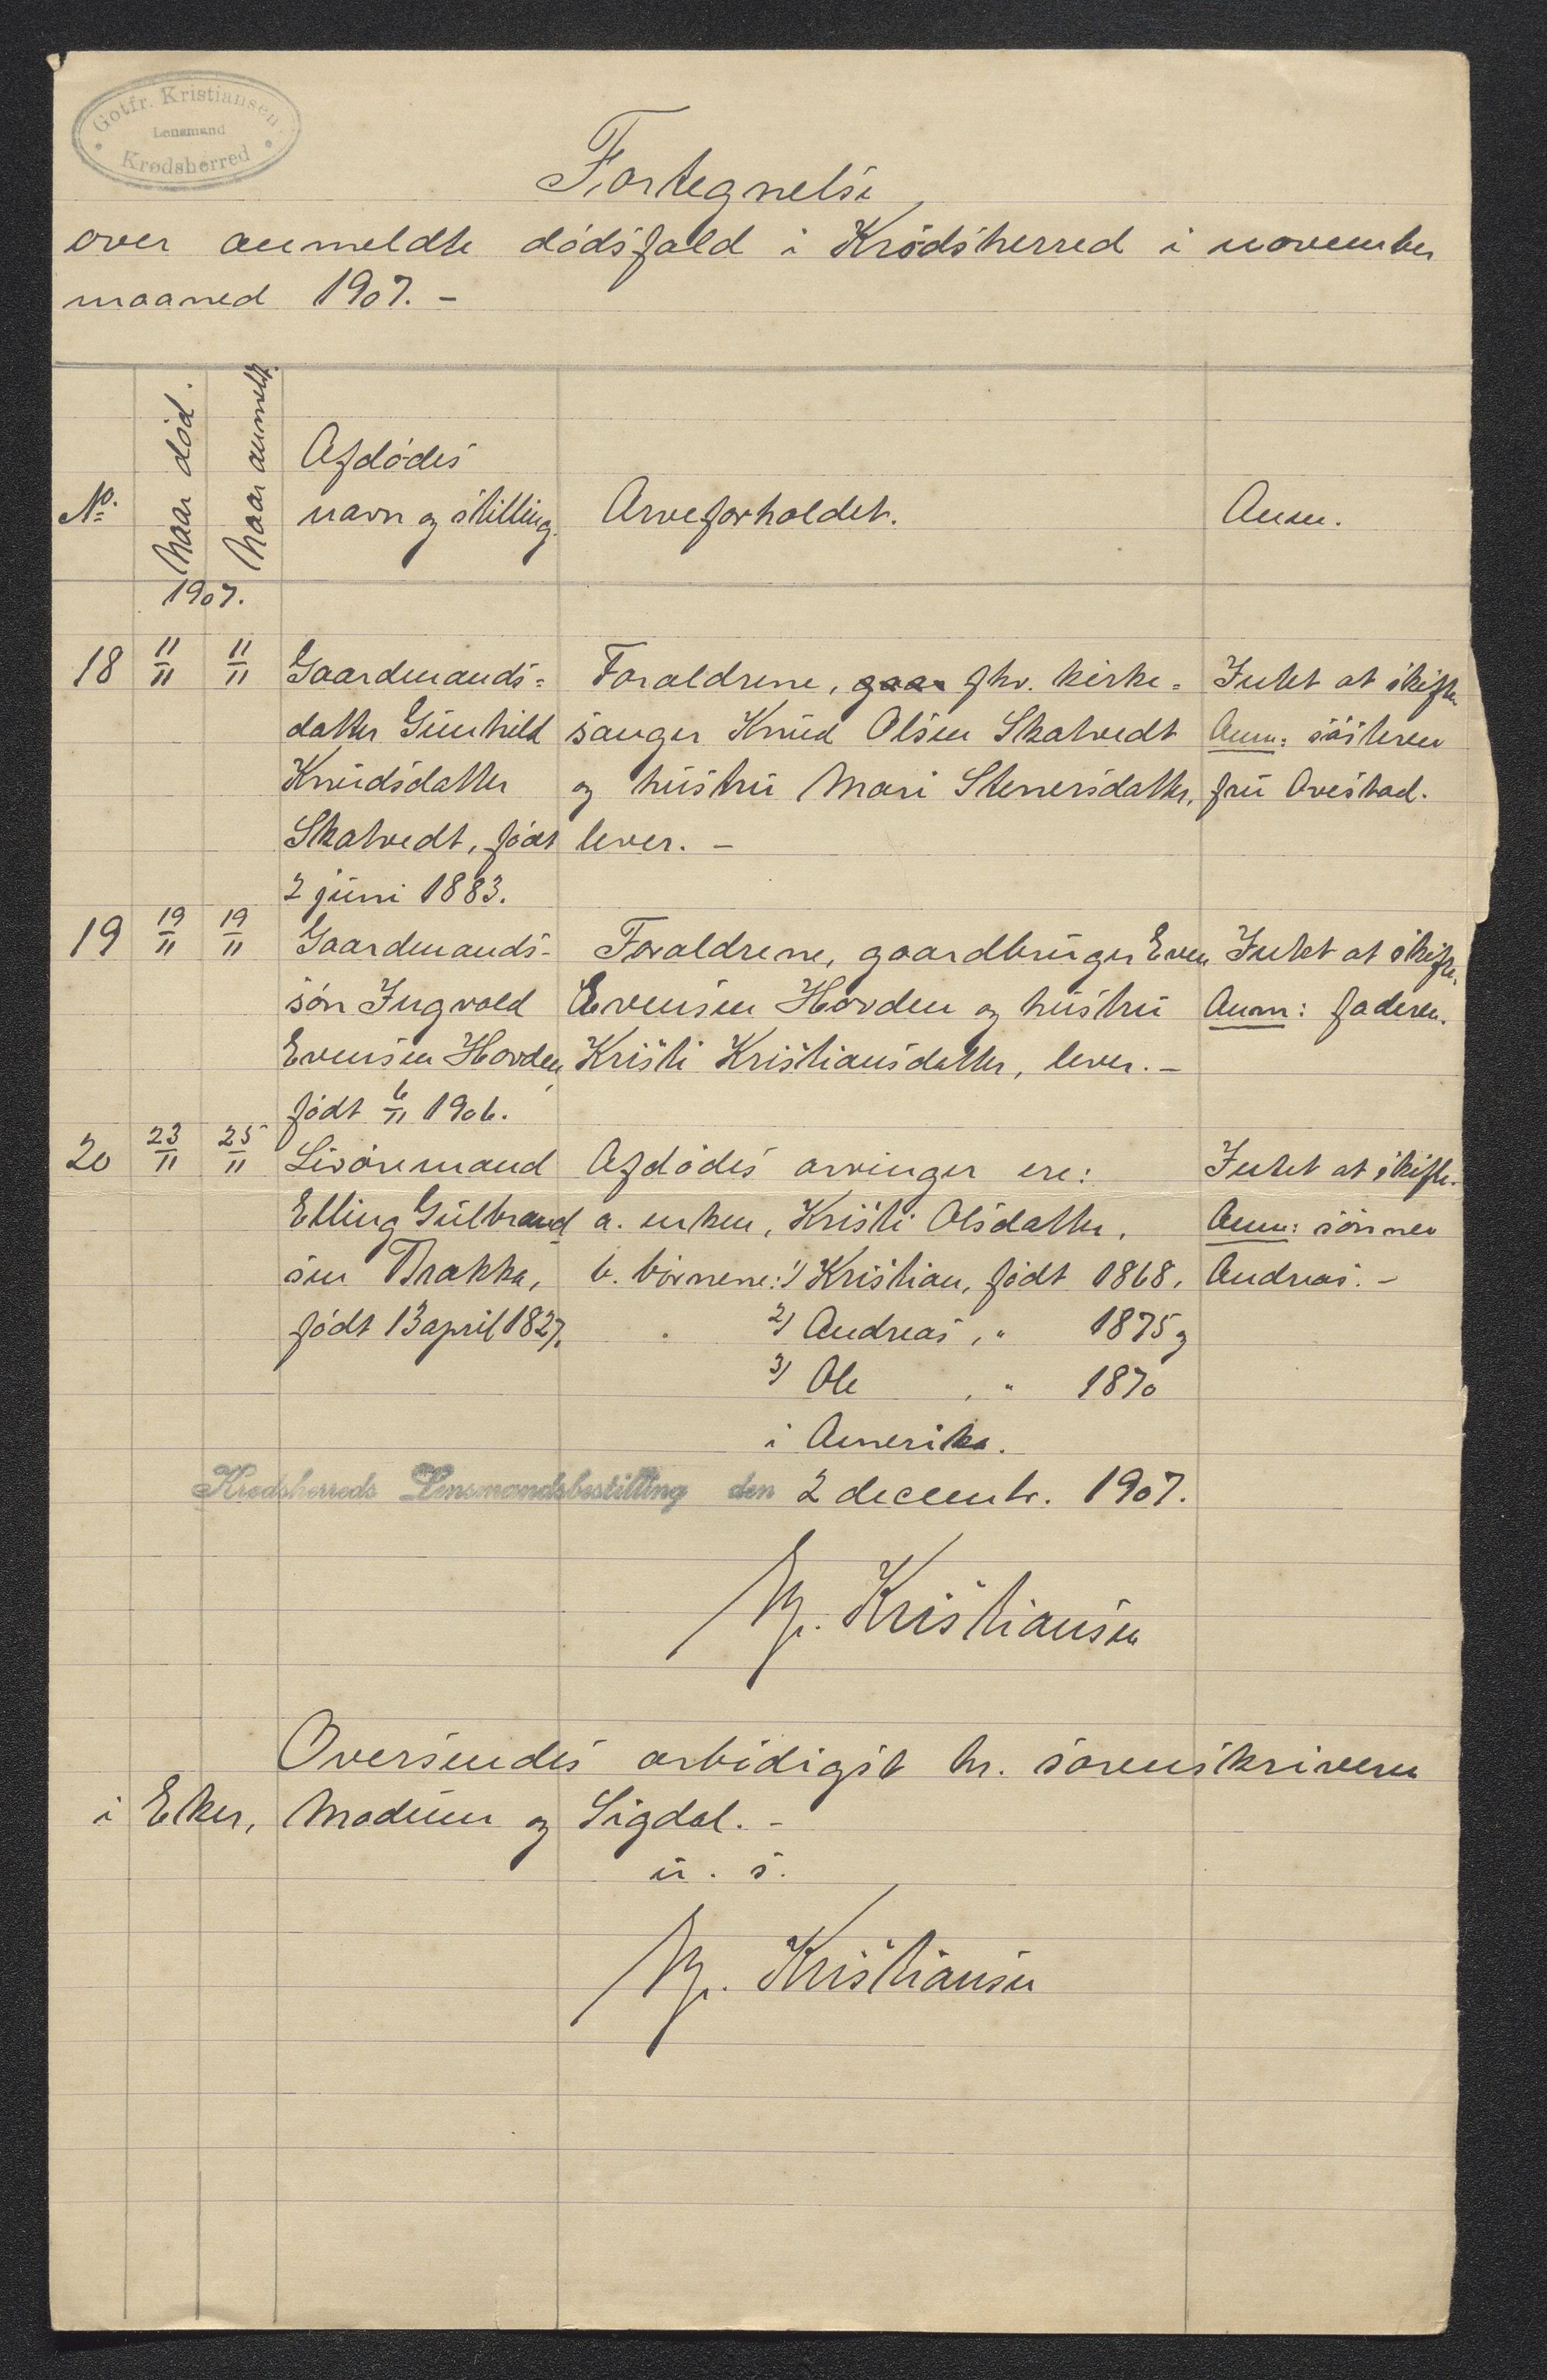 Gotfr. Kristiansen
Lensmand
Krødsherred
Fortegnelse
over anmeldte dödsfald i Krödsherred i november
maaned 1907. -
No. Naar död. Naar anmeldt. Afdödes
navn og stilling. Arveforholdet. Anm.
1907.
18 11/11 11/11 Gaardmands= Foraldrene, gaar fhv. kirke= Intet at skifte
datter Gunhild sanger Knud Olsen Skatvedt Anm: sösteren
Knudsdatter og hustru Mari Stenersdatter, fru Ovestad.
Skatvedt, födt lever. -
2 juni 1883.
19 19/11 19/11 Gaardmands- Foraldrene, gaardbruger Even Intet at skifte.
sön Ingvald Evensen Hovden og hustru Anm: faderen.
Evensen Hovden, Kristi Kristiansdatter, lever. -
födt 6/11 1906.
20 23/11 25/11 Livöremand Afdödes arvinger ere: Intet at skifte.
Elling Gulbrand a. enken, Kristi Olsdatter. Anm: sönnen
sen Brakka, b. börnene: 1) Kristian, födt 1868, Andreas. -
födt 13 april 1827. 2) Andreas , " 1875 og
3) Ole , " 1870
i Amerika.
Krødsherreds Lensmandsbestilling den 2 decembr. 1907.
Kristiansen
Oversendes ærbödigst hr. sorenskriveren
i Eker, Modum og Sigdal. -
u. s.
Kristiansen